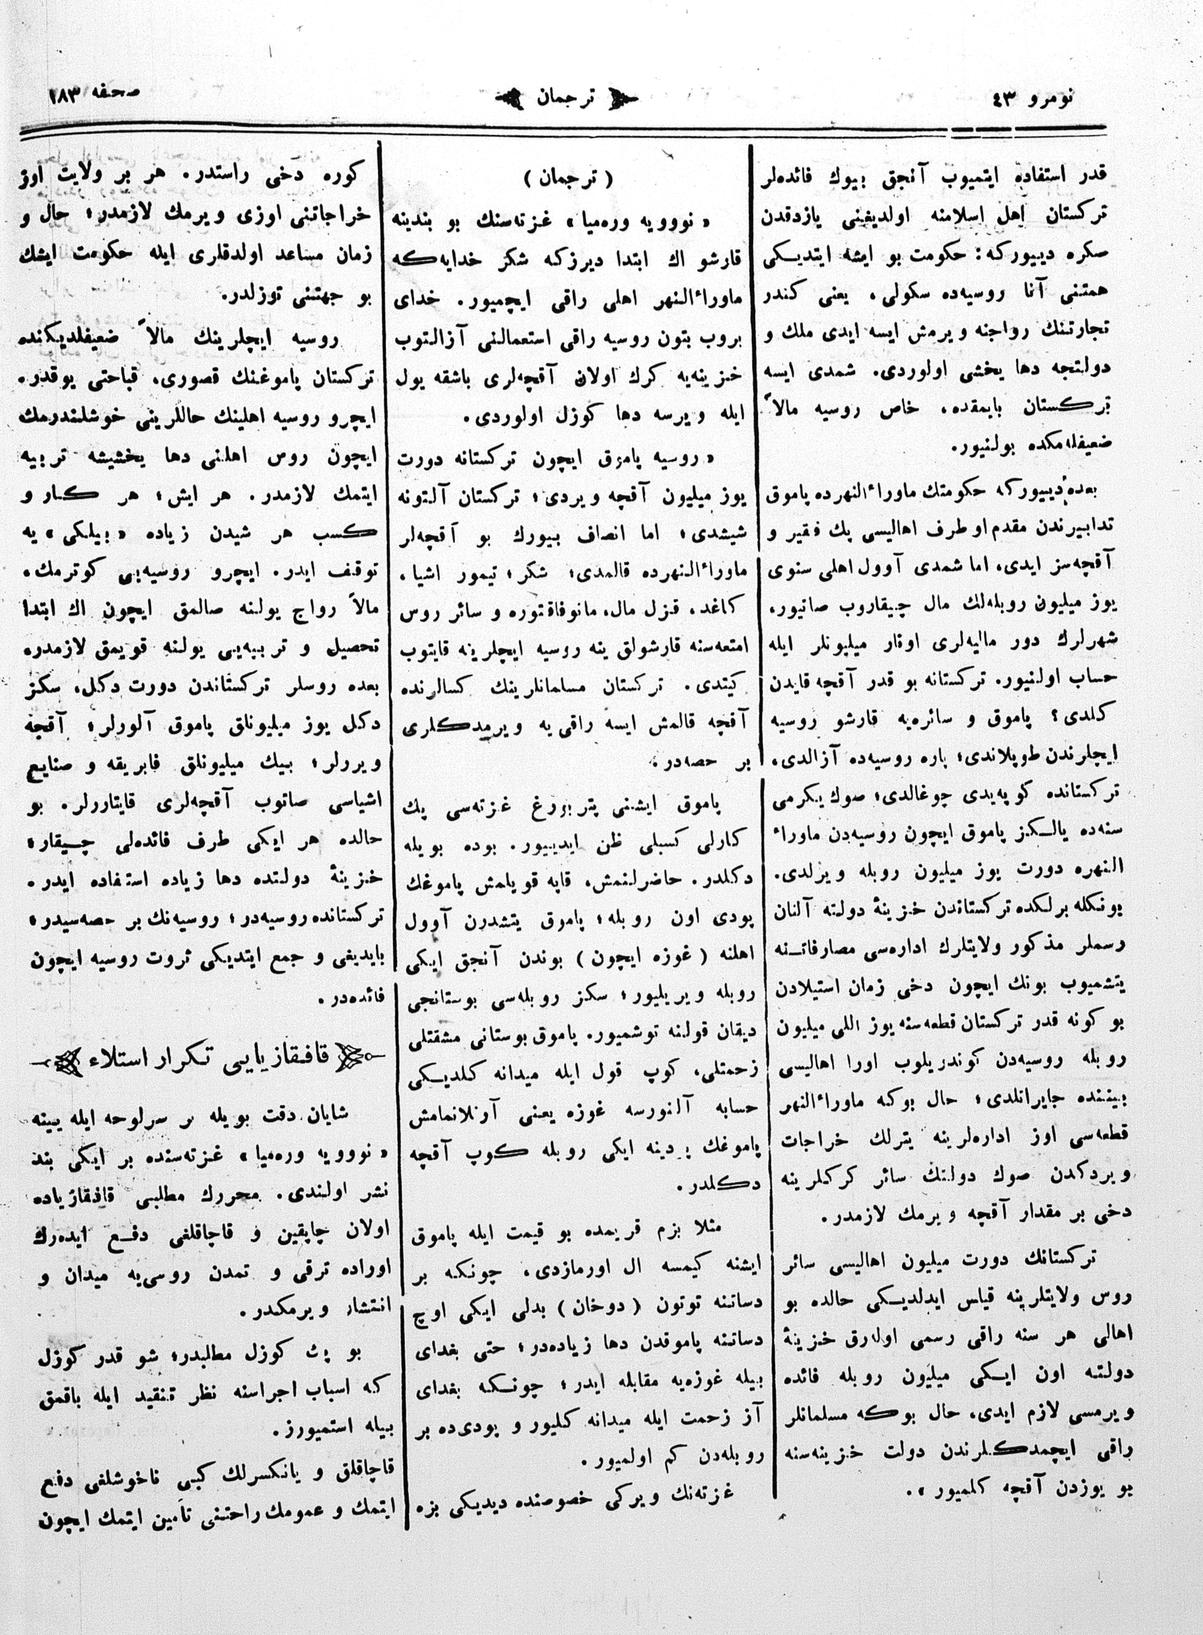 نومرو ٤٣
ترجمان
صحفه ١٨٣
قدر استفاده ایتمیوب آنجق بیوك فائده‌لر
تركستان اهل اسلامنه اولدیغینی یازدقدن
صكره دیییوركه: حكومت بو ایشه ایتدیـكی
همتنی آنا روسیه‌ده سكولی، یعنی كندر
تجارتنك رواجنه ویرمش ایسه ایدی ملك و
دولتجه دها یخشی اولوردی. شمدی ایسه
تركستان بایمقده، خاص روسیه مالاً
ضعیفله‌مكده بولنیور.
بعده دیییوركه حكومتك ماوراءالنهرده پاموق
تدابیرندن مقدم او طرف اهالیسی پك فقیر و
آقچه‌سز ایدی، اما شمدی آوول اهلی سنوی
یوز میلیون روبله‌لك مال چیقاروب صاتیور،
شهرلرك دور مالیه‌لری اونلر میلیونلر ایله
حساب اولنیور. تركستانه بو قدر آقچه قایدن
كلدی؟ پاموق و سائره‌یه قارشو روسیه
ایچلرندن طوپلاندی؛ پاره روسیه‌ده آزالدی،
تركستانده كوپه‌یدی چوغالدی؛ صوك یكرمی
سنه‌ده یالـكز پاموق ایچون روسیه‌دن ماوراء
النهره دورت یوز میلیون روبله ویرلدی.
بونكله برلكده تركستاندن خزینهٔ دولته آلنان
رسملر مذكور ولایتلرك اداره‌سی مصارفاتـنه
یتشمیوب بونك ایچون دخی زمان استیلادن
بو كونه قدر تركستان قطعه‌سنه یوز اللی میلیون
روبله روسیه‌دن كوندریلوب اورا اهالیسی
بیننده جایرانلدی؛ حال بوكه ماوراءالنهر
قطعه‌سی اوز اداره‌لرینه یترلك خراجات
ویردكدن صوك دولتنك سائر كركلرینه
دخی بر مقدار آقچه ویرمك لازمدر.
تركستانك دورت میلیون اهالیسی سائر
روس ولایتلرینه قیاس ایدلدیـكی حالده بو
اهالی هر سنه راقی رسمی اوله‌رق خزینهٔ
دولته اون ایـكی میلیون روبله فائده
ویرمسی لازم ایدی، حال بوكه مسلمانلر
راقی ایچمدكلرندن دولت خزینه‌سنه
بو یوزدن آقچه كلمیور».
( ترجمان )
«نوویه وره‌میا» غزته‌سنك بو بندینه
قارشو اك ابتدا دیرزكه شكر خدایه‌كه
ماوراءالنهر اهلی راقی ایچمیور. خدای
بروب بتون روسیه راقی استعمالنی آزالتوب
خزینه‌یه كرك اولان آقچه‌لری باشقه یول
ایله ویرسه دها كوزل اولوردی.
«روسیه پاموق ایچون تركستانه دورت
یوز میلیون آقچه ویردی؛ تركستان آلتونه
شیشدی؛ اما انصاف بیورك بو آقچه‌لر
ماوراءالنهرده قالمدی؛ شكر؛ تیمور اشیا،
كاغد، قزل مال، مانوفاقتوره و سائر روس
امتعه‌سنه قارشولق ینه روسیه ایچلرینه قایتوب
كیتدی. تركستان مسلمانلرینك كسالرنده
آقچه قالمش ایسه راقی‌یه ویرمدكلری
بر حصه‌در.
پاموق ایشنی پتربورغ غزته‌سی پك
كارلی كسبلی ظن ایدییور. بوده بویله
دكلدر. حاضرلنمش، قاپه قویلمش پاموغك
پودی اون روبله؛ پاموق یتشدرن آوول
اهلنه ( غوزه ایچون ) بوندن آنجق ایكی
روبله ویریلیور؛ سكز روبله‌سی بوستانجی
دیقان قولنه توشمیور. پاموق بوستانی مشقتلی
زحمتلی، كوپ قول ایله میدانه كلدیـكی
حسابه آلنورسه غوزه یعنی آونلانمامش
پاموغك پودینه ایكی روبله كوپ آقچه
دكلدر.
مثلا بزم قریمده بو قیمت ایله پاموق
ایشنه كیمسه ال اورمازدی، چونكه بر
دساتنه توتون (دوخان) بدلی ایكی اوچ
دساتنه پاموقدن دها زیاده‌در؛ حتی بغدای
بیله غوزه‌یه مقابله ایدر؛ چونكه بغدای
آز زحمت ایله میدانه كلیور و پودی‌ده بر
روبله‌دن كم اولمیور.
غزته‌نك ویركی خصوصنده دیدیكی بزه
كوره دخی راستدر. هر بر ولایت اوز
خراجاتنی اوزی ویرمك لازمدر؛ حال و
زمان مساعد اولدقلری ایله حكومت ایشك
بو جهتنی توزلدر.
روسیه ایچلرینك مالاً ضعیفلدیكنده
تركستان پاموغنك قصوری، قباحتی یوقدر.
ایچرو روسیه اهلینك حاللرینی خوشلندرمك
ایچون روس اهلنی دها یخشیشه تربیه
ایتمك لازمدر. هر ایش؛ هر كار و
كسب هر شیدن زیاده «بیلكی»‌یه
توقف ایدر. ایچرو روسیه‌یی كوترمك،
مالاً رواج یولنه صالمق ایچون اك ابتدا
تحصیل و تربیه‌یی یولنه قویمق لازمدره
بعده روسلر تركستاندن دورت دكل، سكز
دكل یوز میلیونلق پاموق آلورلر؛ آقچه
ویررلر؛ بیك میلیونلق فابریقه و صنایع
اشیاسی صاتوب آقچه‌لری قایتاررلر. بو
حالده هر ایكی طرف فائده‌لی چـیقار؛
خزینهٔ دولتده دها زیاده استفاده ایدر.
تركستانده روسیه‌در؛ روسیه‌نك بر حصه‌سیدر؛
بایدیغی و جمع ایتدیكی ثروت روسیه ایچون
فائده‌در.
قافـقازیایی تـكرار استلاء
شایان دقت بویله بر سرلوحه ایله یینه
«نوویه وره‌میا» غزته‌سنده بر ایكی بند
نشر اولندی. محررك مطلبی قافقازیاده
اولان چاپقین و قاچاقلغی دفـع ایده‌رك
اوراده ترقی و تمدن روسی‌یه میدان و
انتشار ویرمكدر.
بو پك كوزل مطلبدر؛ شو قدر كوزل
كه اسباب اجراسنه نظر تنقید ایله باقمق
بیله استمیورز.
قاچاقلق و یانكسرلك كبی ناخوشلغی دفع
ایتمك و عمومك راحتنی تأمین ایتمك ایچون